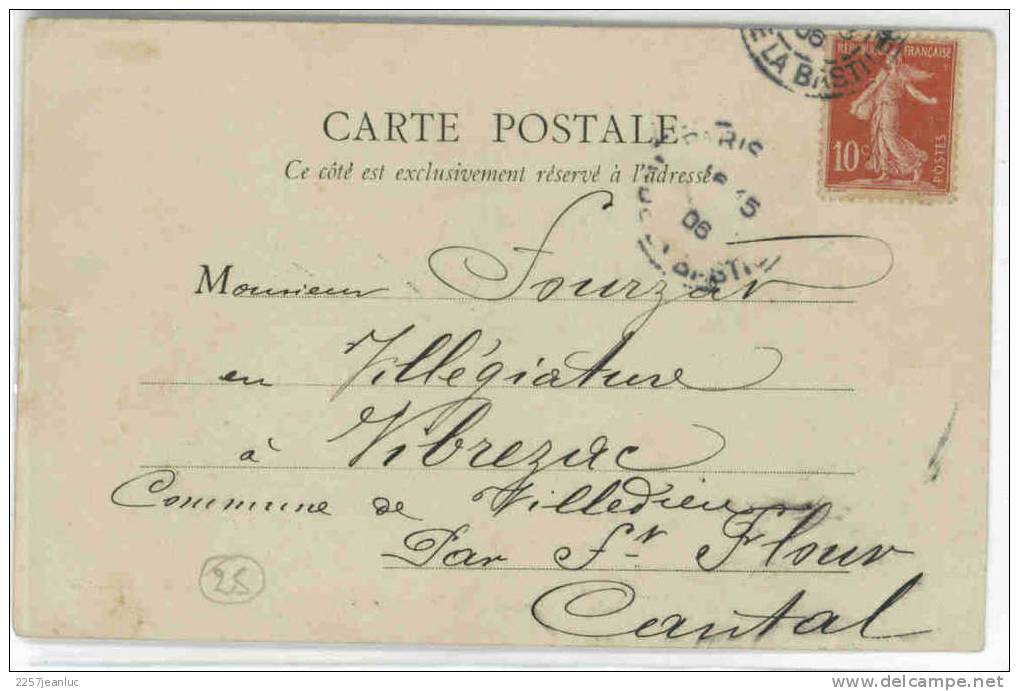 06
E LA BASTI
REPUBLIQUE FRANÇAISE
10c
POSTES
CARTE POSTALE
PARIS
Ce côté est exclusivement réservé à l'adresse
15
06
BASTI
Monsieur Fourzac
en Villégiature
à Vibrezac
Commune de Villedieu
Par St Flour
Cantal
25
2257jeanluc
www.delcampe.net